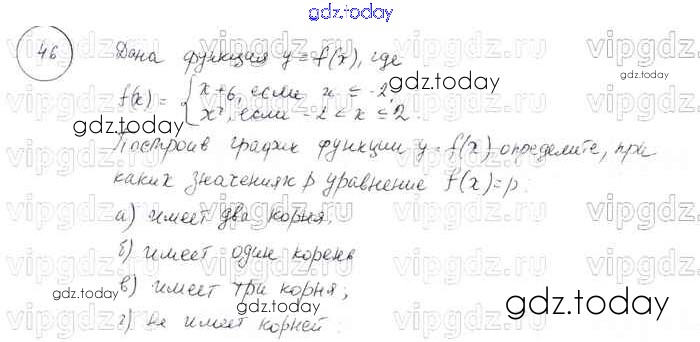 gdz.today
46 Дана функция y = f(x), где
gdz.today
f(x) = { x+6, если x ≤ -2,
x², если -2 < x ≤ 2.
gdz.today
Построив график функции y = f(x) определите, при
каких значениях p уравнение f(x)=p:
а) имеет два корня,
б) имеет один корень
в) имеет три корня;
gdz.today
gdz.today
г) не имеет корней.
vipgdz.ru